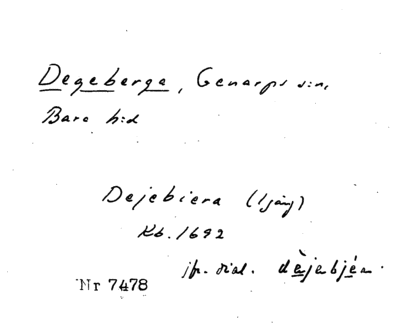 Degeberga, Genarps sn,
Bara hd
Dejebiera (1 gång)
Kb. 1692
jfr. dial. dèjebjéa.
Nr 7478